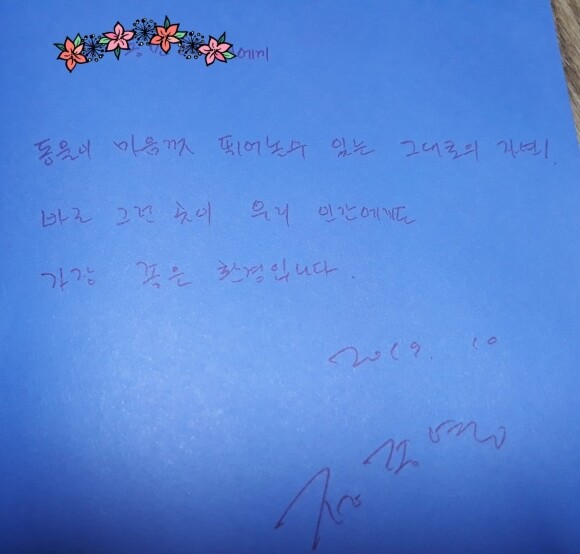 에게
동물이 마음껏 뛰어놀수 있는 그대로의 자연!
바로 그런 곳이 우리 인간에게도
가장 좋은 환경입니다.
2019. 10